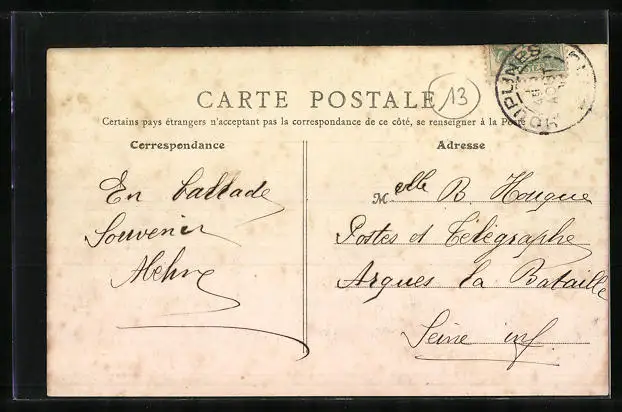 CARTE POSTALE
13
Certains pays étrangers n'acceptant pas la correspondance de ce côté, se renseigner à la Poste
Correspondance
Adresse
En ballade
Souvenir
Melle B. Hougue
Postes et Télégraphe
Arques la Bataille
Seine inf.